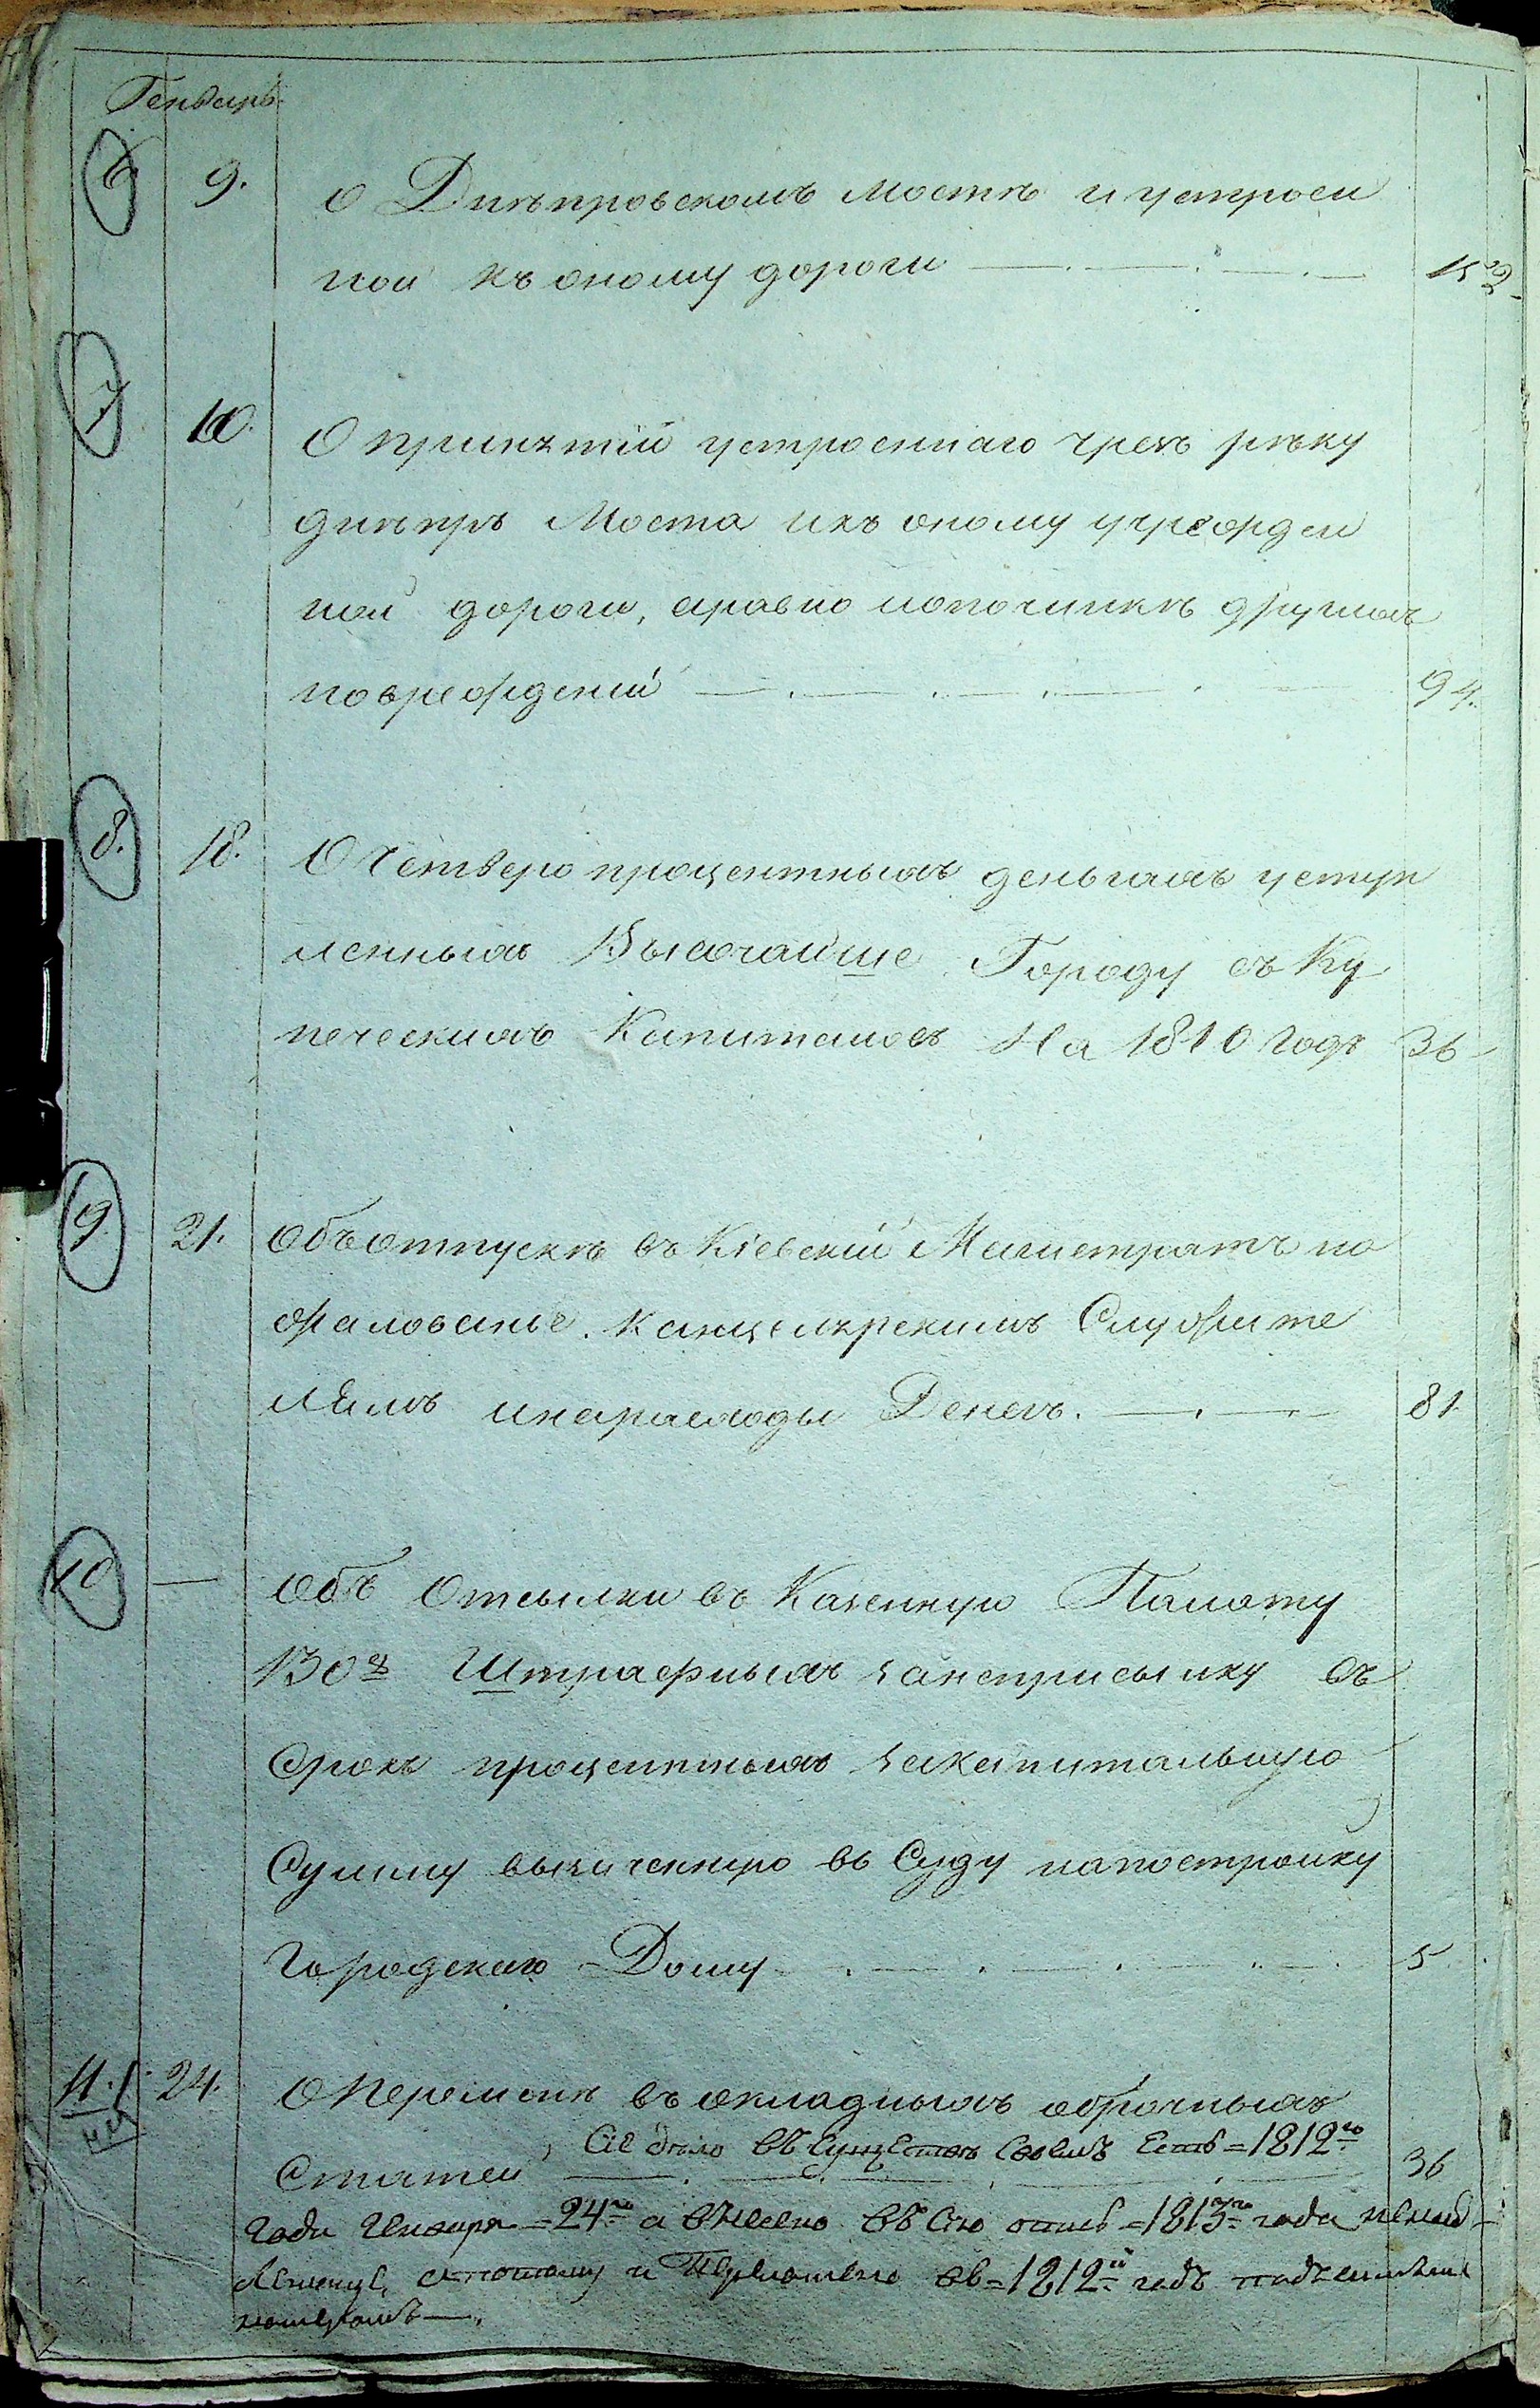 Генварь
6. 9. О Днепровскомъ мосте и устроен
ной къ оному дороги 152
7 10. О принятіи устроеннаго чрезъ реку
днепръ Моста икъ оному учрежден
ной дороги, аравно ипочинке другихъ
поврежденій 94.
8. 18. О Четверопроцентныхъ деньгахъ уступ
ленныхъ Высочайше Городу съ Ку
печескихъ Капиталовъ На 1810 годъ 36
9. 21. Объотпуске въ Кіевскій Магистратъ на
жалованье Канцелярскимъ Служите
лямъ инарасходы Денегъ. 81.
10 — Объ Отсылки въ Казенную Палату
Штрафныхъ занеприсылку въ
Срокъ процентныхъ закапитальную
Сумму взыченную въ Суду напостройку
Городскаго Дому 5.
11. 24. О Перемене въокладныхъ оброчныхъ
Сіе дело въ Существе своемъ Есть =1812го
Статей 36
года Генваря =24го а внесено въ Сію опись =1813го года
апотому и въ =1812й годъ